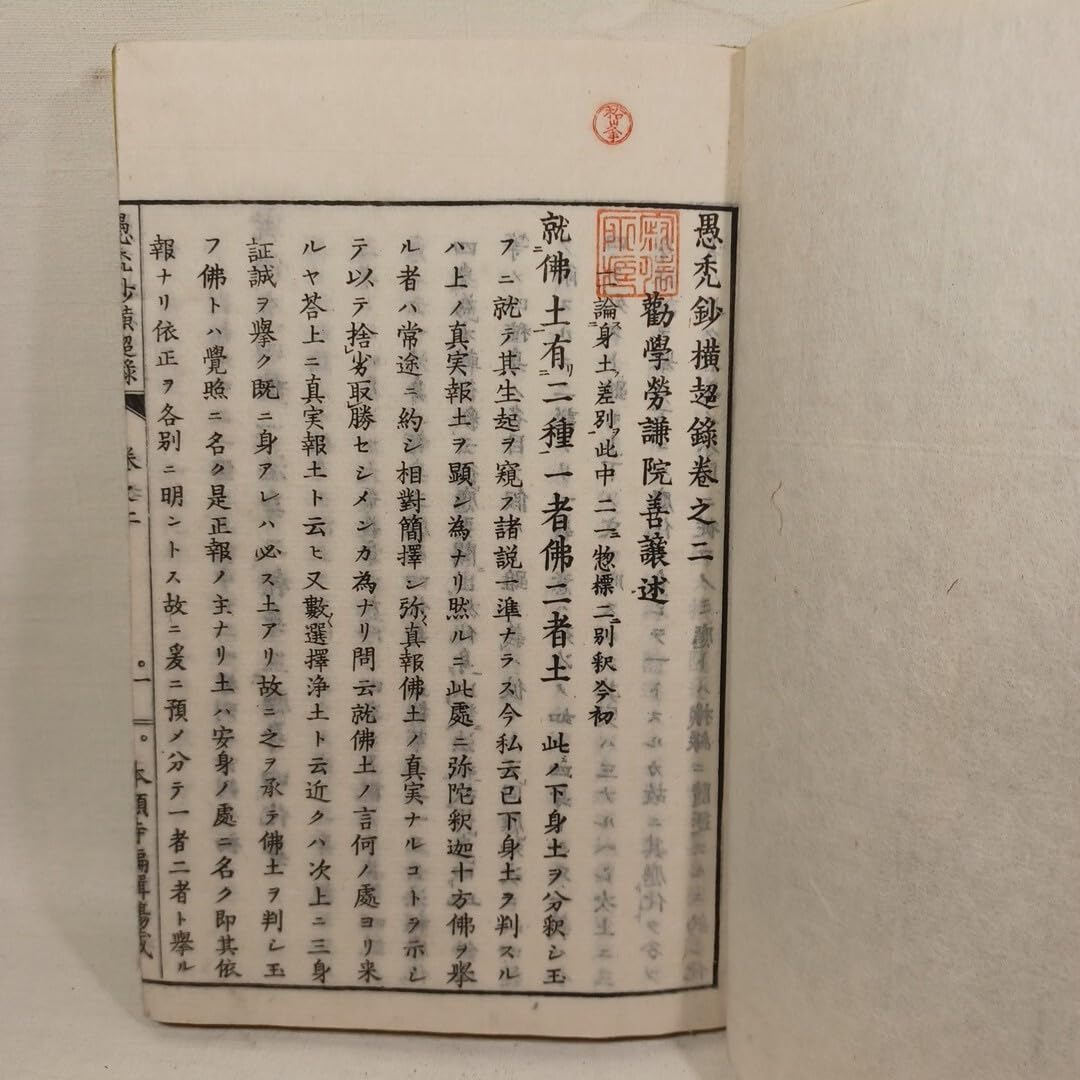 愚禿鈔橫超錄卷之二
勸學勞謙院善讓述
二論身土差別此中二一惣標二別釈今初
就佛土有二種一者佛二者土 此ノ下身土ヲ分釈シ玉
フニ就テ其生起ヲ窺フ諸説一準ナラス今私云已下身土ヲ判スル
ハ上ノ真実報土ヲ顕ン為ナリ然ルニ此處ニ弥陀釈迦十方佛ヲ挙
ル者ハ常途ニ約シ相對簡擇シ弥真報佛土ノ真実ナルコトヲ示シ
テ以テ捨劣取勝セシメンカ為ナリ問云就佛土ノ言何ノ處ヨリ来
ルヤ荅上ニ真実報土ト云ヒ又數選擇浄土ト云近クハ次上ニ三身
証誠ヲ擧ク既ニ身アレハ必ス土アリ故ニ之ヲ承テ佛土ヲ判シ玉
フ佛トハ覺照ニ名ク是正報ノ主ナリ土ハ安身ノ處ニ名ク即其依
報ナリ依正ヲ各別ニ明ントス故ニ爰ニ預メ分テ一者二者ト擧ル
愚禿鈔橫超錄 卷之二 一 本願寺編輯